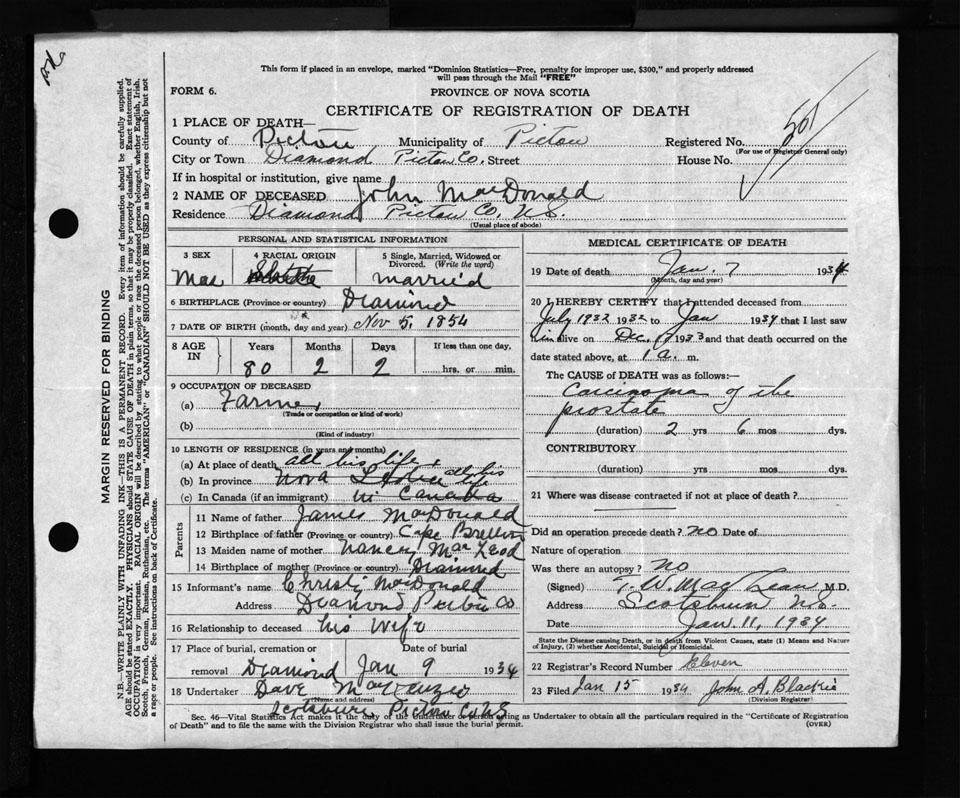 This form if placed in an envelope, marked "Dominion Statistics—Free, penalty for improper use, $300," and properly addressed
will pass through the Mail "FREE"
FORM 6.
PROVINCE OF NOVA SCOTIA
CERTIFICATE OF REGISTRATION OF DEATH
1 PLACE OF DEATH—
County of Pictou Municipality of Pictou Registered No. 501
(For use of Registrar General only)
City or Town Diamond Pictou Co. Street House No.
If in hospital or institution, give name
2 NAME OF DECEASED John MacDonald
Residence Diamond Pictou Co. N.S.
(Usual place of abode)
PERSONAL AND STATISTICAL INFORMATION
3 SEX 4 RACIAL ORIGIN 5 Single, Married, Widowed or
Divorced. (Write the word)
Mae married
6 BIRTHPLACE (Province or country) Diamond
7 DATE OF BIRTH (month, day and year) Nov 5, 1854
8 AGE IN Years Months Days If less than one day,
80 2 2 hrs. or min.
9 OCCUPATION OF DECEASED
(a) Farmer
(Trade or occupation or kind of work)
(b)
(Kind of industry)
10 LENGTH OF RESIDENCE (in years and months)
(a) At place of death all his life
(b) In province Nova Scotia all his life
(c) In Canada (if an immigrant) in Canada
Parents
11 Name of father James MacDonald
12 Birthplace of father (Province or country) Cape Breton
13 Maiden name of mother Nancy MacLeod
14 Birthplace of mother (Province or country) Diamond
15 Informant's name Christy MacDonald
Address Diamond Pictou Co
16 Relationship to deceased his wife
17 Place of burial, cremation or Date of burial
removal Diamond Jan 9 1934
18 Undertaker Dave MacKenzie
(Name and address)
Scotsburn Pictou Co NS
MEDICAL CERTIFICATE OF DEATH
19 Date of death Jan. 7 1934
(Month, day and year)
20 I HEREBY CERTIFY that I attended deceased from
July 1932 1932 to Jan 1934 that I last saw
him alive on Dec 1933 and that death occurred on the
date stated above, at 1 a. m.
The CAUSE of DEATH was as follows:—
Carcinoma of the
prostate
(duration) 2 yrs 6 mos dys.
CONTRIBUTORY
(duration) yrs. mos. dys.
21 Where was disease contracted if not at place of death?
Did an operation precede death? no Date of
Nature of operation
Was there an autopsy? no
(Signed) T. W. MacLean M.D.
Address Scotsburn N.S.
Date Jan. 11, 1934
State the Disease causing Death, or in death from Violent Causes, state (1) Means and Nature
of Injury, (2) whether Accidental, Suicidal or Homicidal.
22 Registrar's Record Number Eleven
23 Filed Jan 15 1934 John A. Blackie
(Division Registrar)
Sec. 46—Vital Statistics Act makes it the duty of the Undertaker or person acting as Undertaker to obtain all the particulars required in the "Certificate of Registration
of Death" and to file the same with the Division Registrar who shall issue the burial permit.
(OVER)
MARGIN RESERVED FOR BINDING
N.B.—WRITE PLAINLY WITH UNFADING INK—THIS IS A PERMANENT RECORD. Every item of information should be carefully supplied.
AGE should be stated EXACTLY. PHYSICIANS should STATE CAUSE OF DEATH in plain terms, so that it may be properly classified. Exact statement of
OCCUPATION is very important. RACIAL ORIGIN will be described by stating to what people or race the deceased person belonged, whether English, Irish,
Scotch, French, German, Russian, Ruthenian, etc. The terms "AMERICAN" or "CANADIAN" SHOULD NOT BE USED as they express citizenship but not
a race or people. See instructions on back of Certificate.